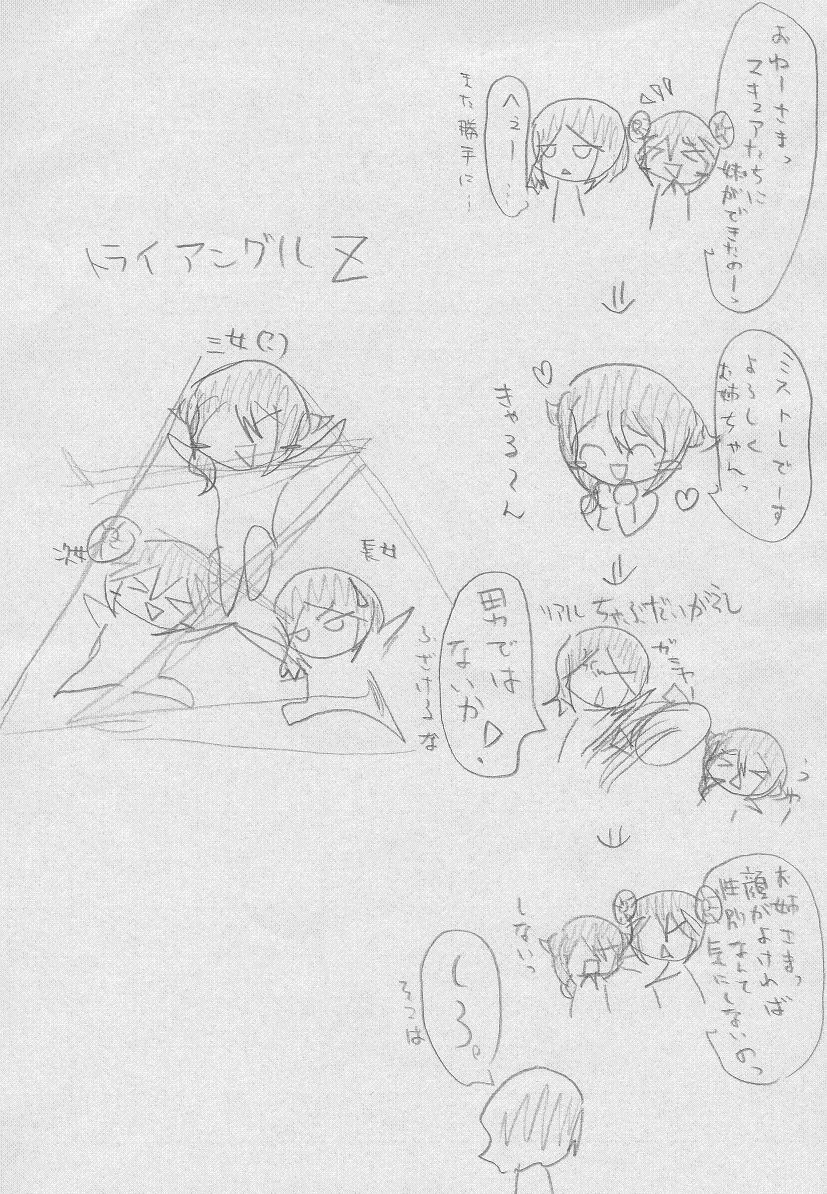 おねーさまっ
マキュアたちに
妹ができたのーっ
へぇー…
また勝手に…
ミストレでーす
よろしく
お姉ちゃんっ
きゃる〜ん
リアルちゃぶだいがえし
ガシャーン
男では
ないか!
うわー
お姉さまっ
顔がよければ
性別なんて
気にしないのっ
しないっ
しろ。
そこは
トライアングルZ
三女(?)
次女
長女
ふざけるな